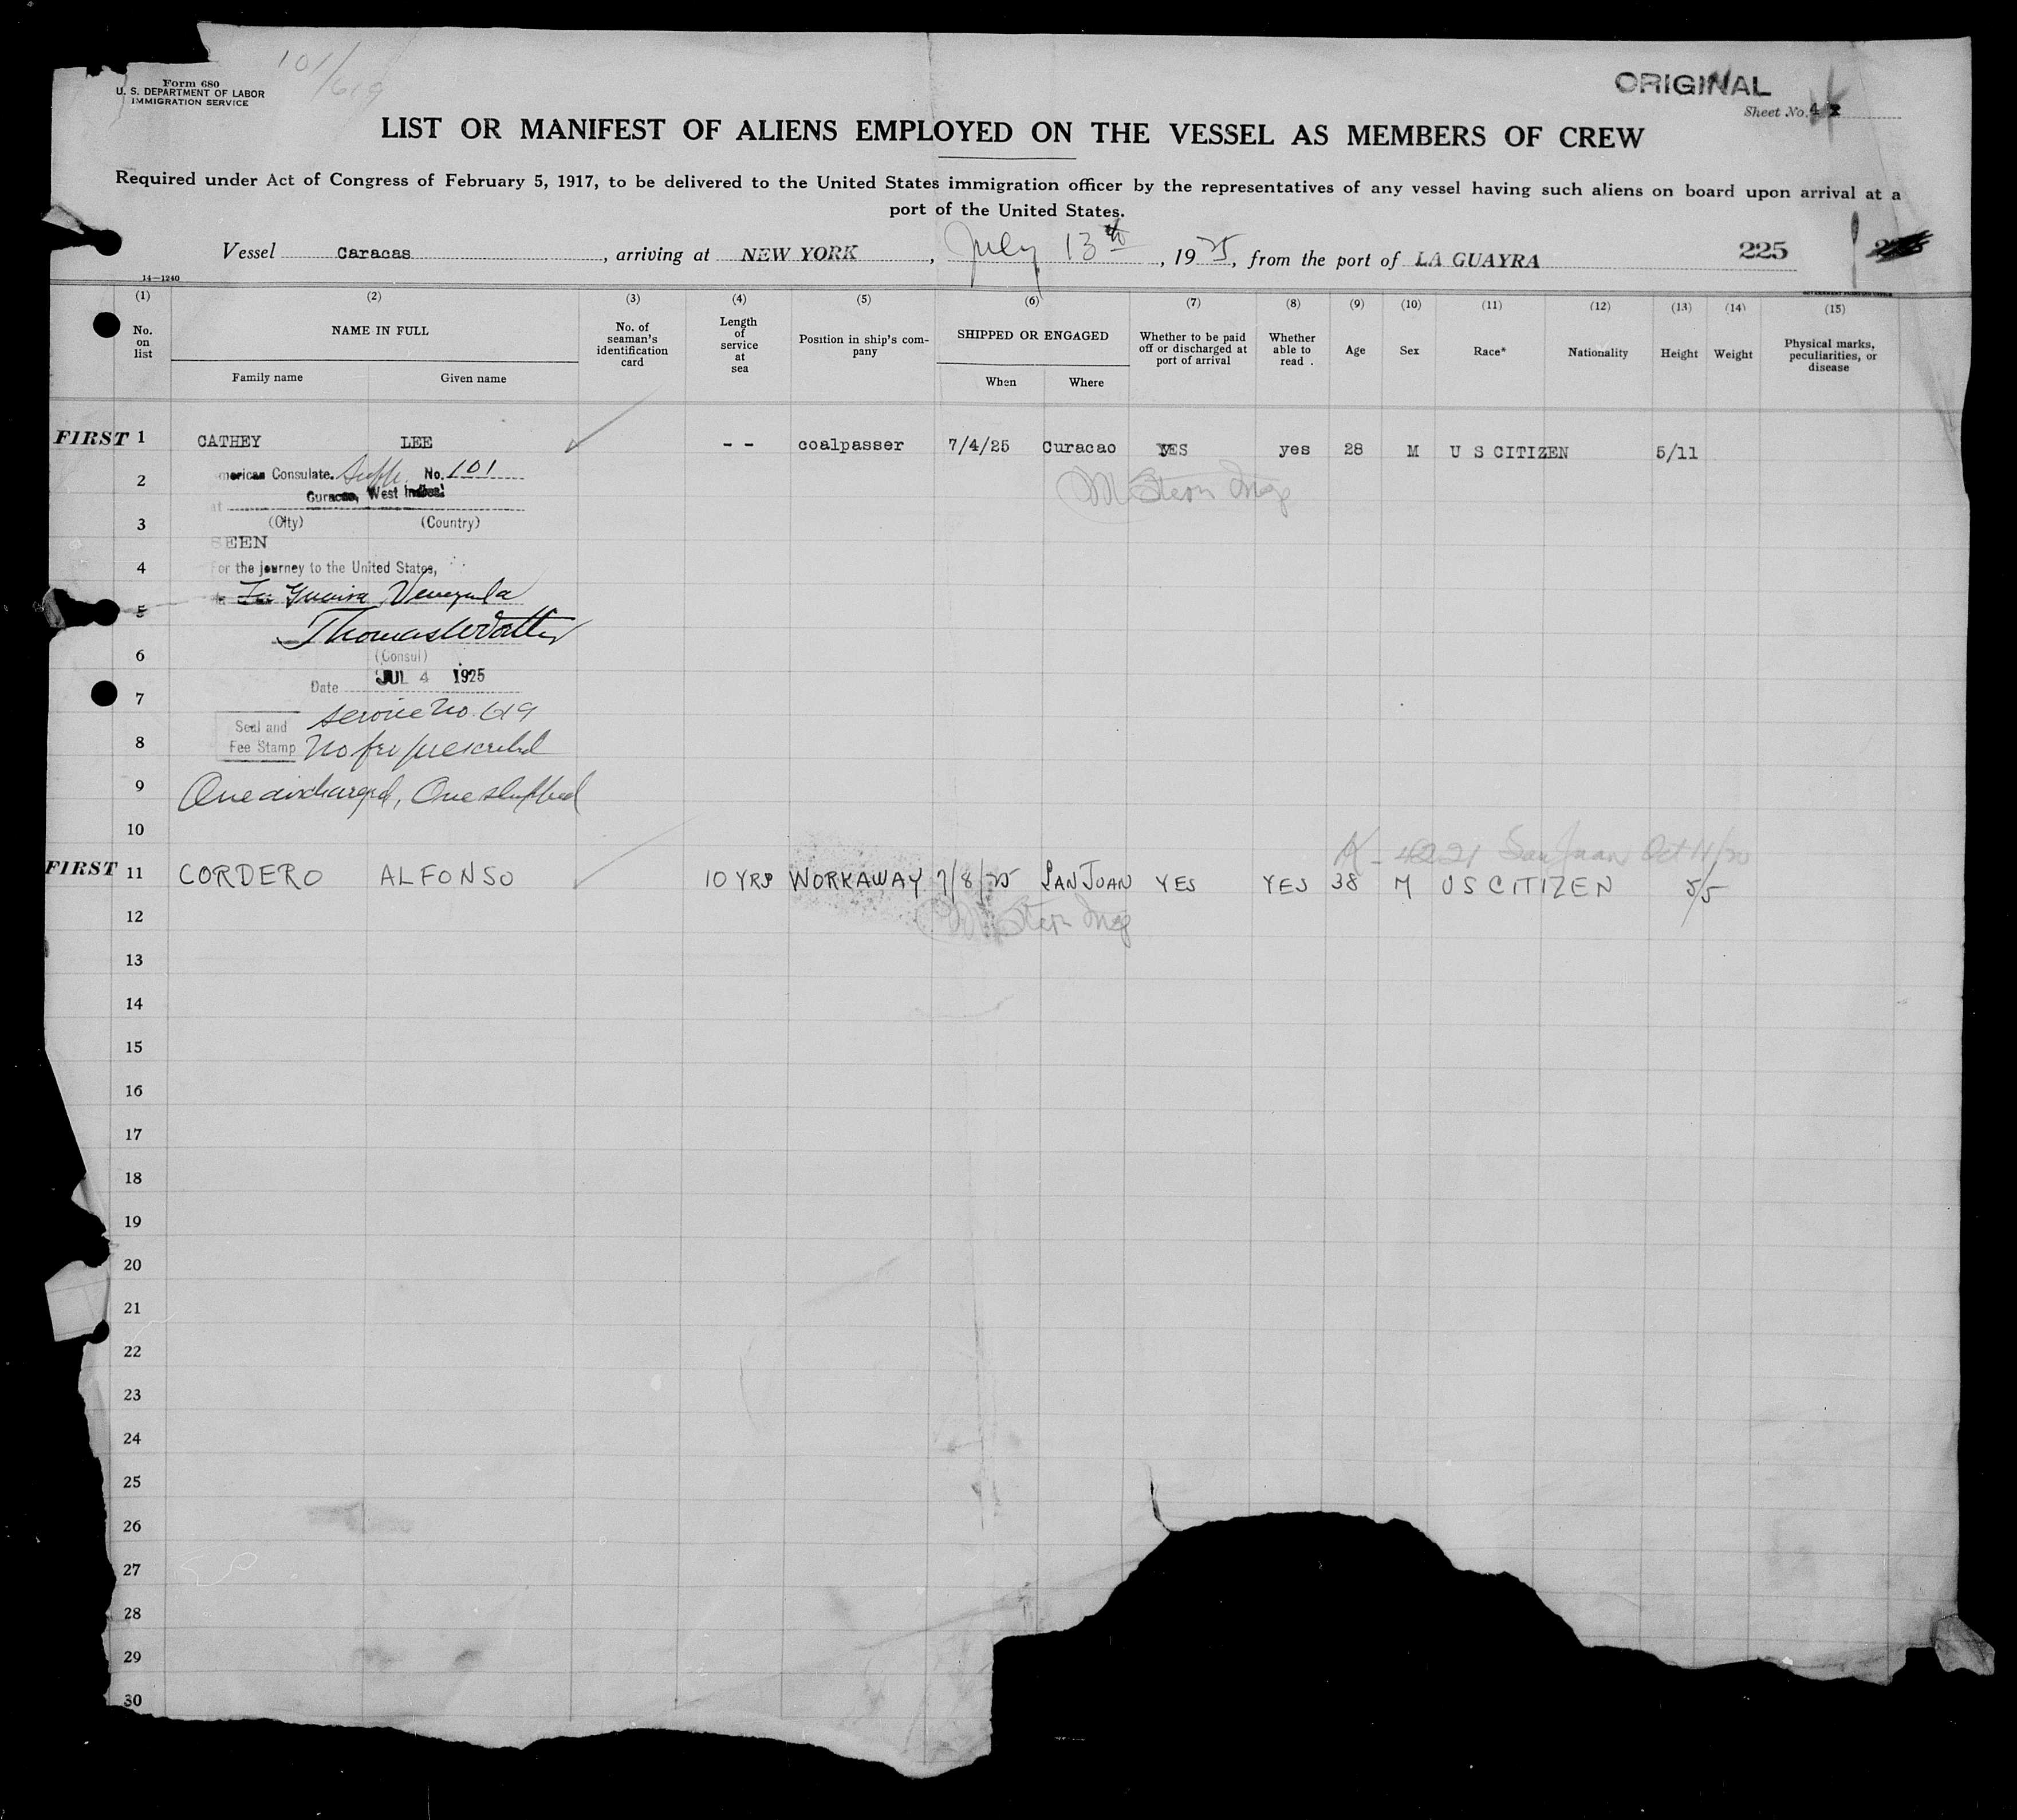 101/619
Form 680
U. S. DEPARTMENT OF LABOR
IMMIGRATION SERVICE
ORIGINAL
Sheet No. 4
LIST OR MANIFEST OF ALIENS EMPLOYED ON THE VESSEL AS MEMBERS OF CREW
Required under Act of Congress of February 5, 1917, to be delivered to the United States immigration officer by the representatives of any vessel having such aliens on board upon arrival at a
port of the United States.
Vessel Caracas, arriving at NEW YORK, July 13th, 1925, from the port of LA GUAYRA 225
14—1240
(1) (2) (3) (4) (5) (6) (7) (8) (9) (10) (11) (12) (13) (14) (15)
No. on list
NAME IN FULL
Family name Given name
No. of seaman's identification card
Length of service at sea
Position in ship's company
SHIPPED OR ENGAGED
When Where
Whether to be paid off or discharged at port of arrival
Whether able to read .
Age
Sex
Race*
Nationality
Height
Weight
Physical marks, peculiarities, or disease
FIRST 1 CATHEY LEE - - coalpasser 7/4/25 Curacao YES yes 28 M U S CITIZEN 5/11
2 merican Consulate. Suppl. No. 101
M Stern Insp
Curacao, West Indies.
at
3 (City) (Country)
SEEN
4 For the journey to the United States,
La Guaira Venezuela
5
Thomas W
6 (Consul)
Date JUL 4 1925
7
Service No. 619
Seal and
Fee Stamp No fee prescribed
8
9 One discharged, One shipped
10
A - 4221 San Juan Oct 11/20
FIRST 11 CORDERO ALFONSO 10 YRS WORKAWAY 7/8/25 SAN JUAN YES YES 38 M U S CITIZEN 5/5
12 M Stern Insp
13
14
15
16
17
18
19
20
21
22
23
24
25
26
27
28
29
30